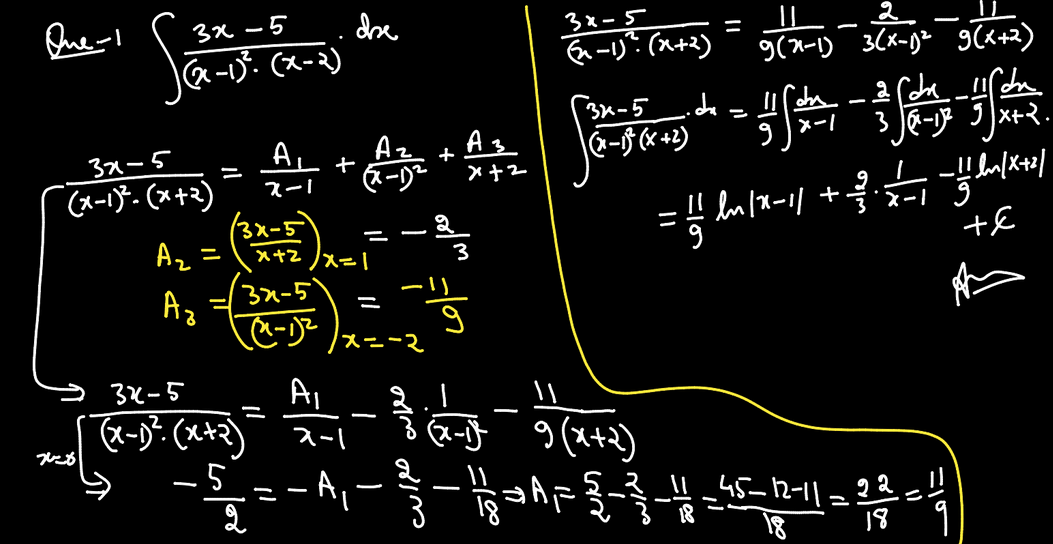 Que-1 ∫ (3x-5)/((x-1)²·(x-2)) · dx
(3x-5)/((x-1)²·(x+2)) = A₁/(x-1) + A₂/(x-1)² + A₃/(x+2)
A₂ = ((3x-5)/(x+2))ₓ₌₁ = -2/3
A₃ = ((3x-5)/(x-1)²)ₓ₌₋₂ = -11/9
⇒ (3x-5)/((x-1)²·(x+2)) = A₁/(x-1) - 2/3 · 1/(x-1)² - 11/(9(x+2))
x=0 ⇒ -5/2 = -A₁ - 2/3 - 11/18 ⇒ A₁ = 5/2 - 2/3 - 11/18 = (45-12-11)/18 = 22/18 = 11/9
(3x-5)/((x-1)²·(x+2)) = 11/(9(x-1)) - 2/(3(x-1)²) - 11/(9(x+2))
∫ (3x-5)/((x-1)²(x+2)) · dx = 11/9 ∫ dx/(x-1) - 2/3 ∫ dx/(x-1)² - 11/9 ∫ dx/(x+2).
= 11/9 ln|x-1| + 2/3 · 1/(x-1) - 11/9 ln|x+2|
+ C